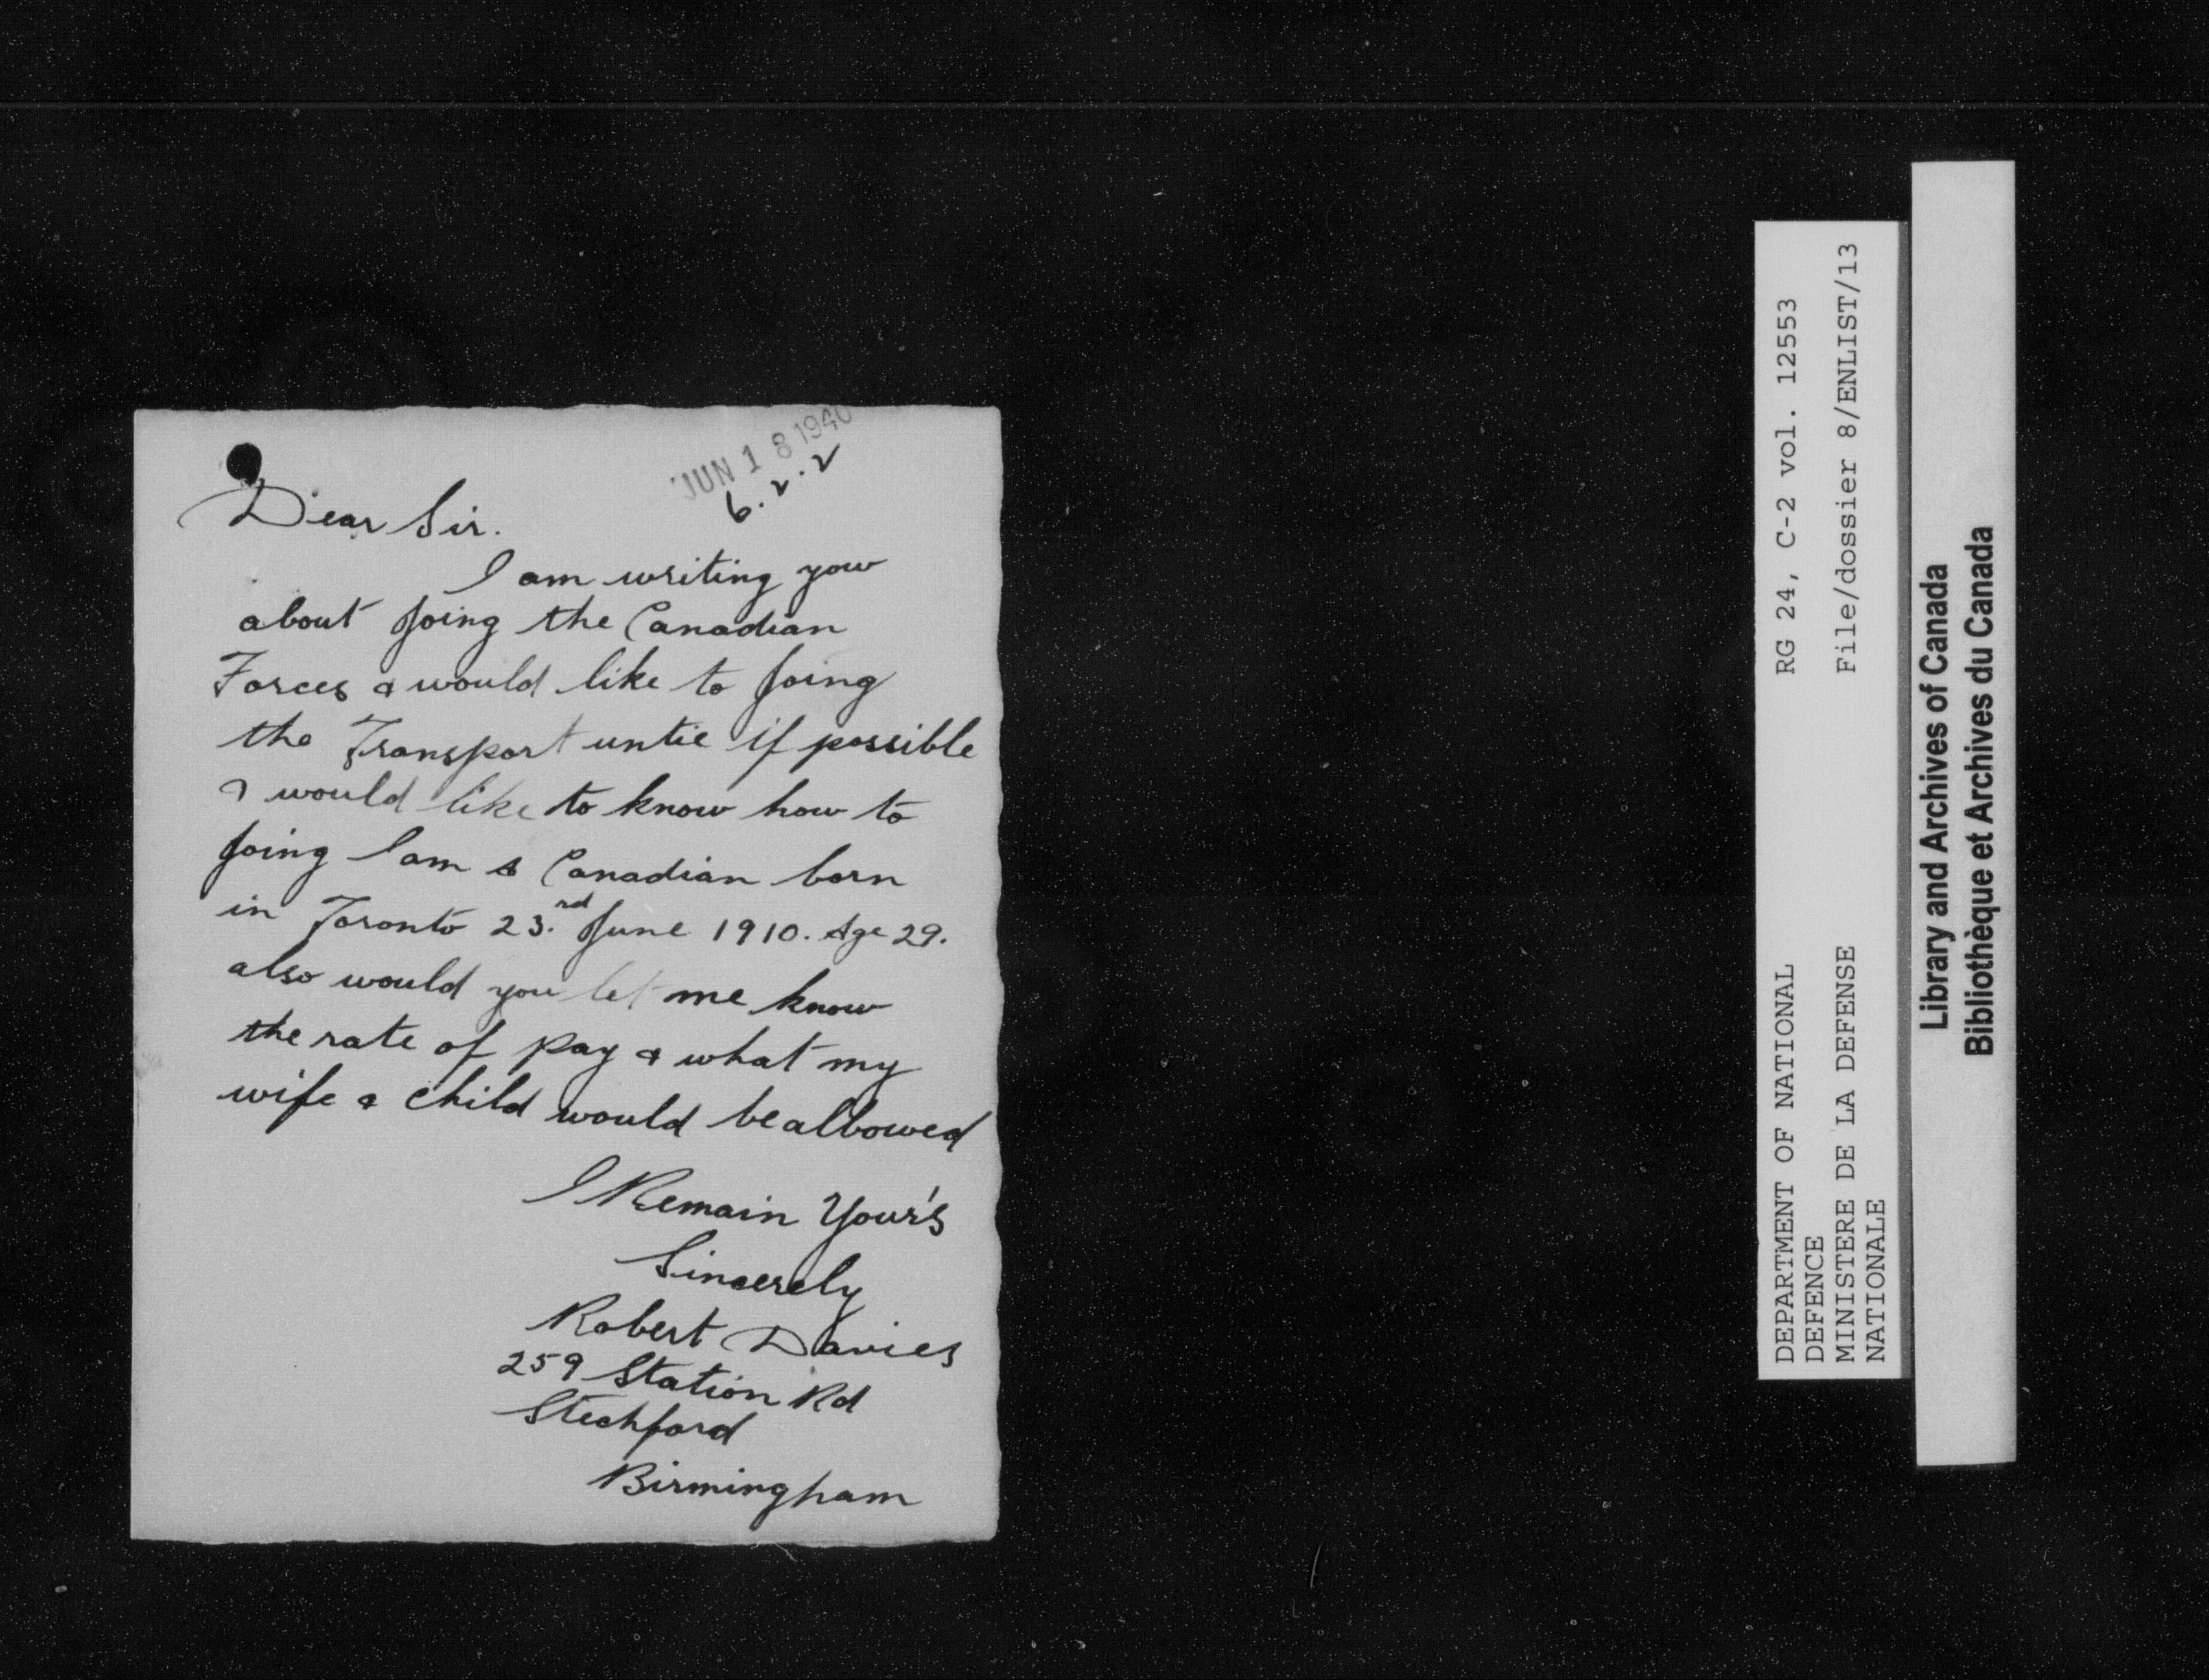 JUN 18 1940
6.2.2
Dear Sir.
I am writing you
about Joing the Canadian
Forces & would like to Joing
the Transport untie if possible
& would like to know how to
Joing I am a Canadian born
in Toronto 23.rd June 1910. Age 29.
also would you let me know
the rate of pay & what my
wife & child would be allowed
I Remain Your's
Sincerely
Robert Davies
259 Station Rd
Stechford
Birmingham
DEPARTMENT OF NATIONAL
DEFENCE
MINISTERE DE LA DEFENSE
NATIONALE
RG 24, C-2 vol. 12553
File/dossier 8/ENLIST/13
Library and Archives of Canada
Bibliothèque et Archives du Canada